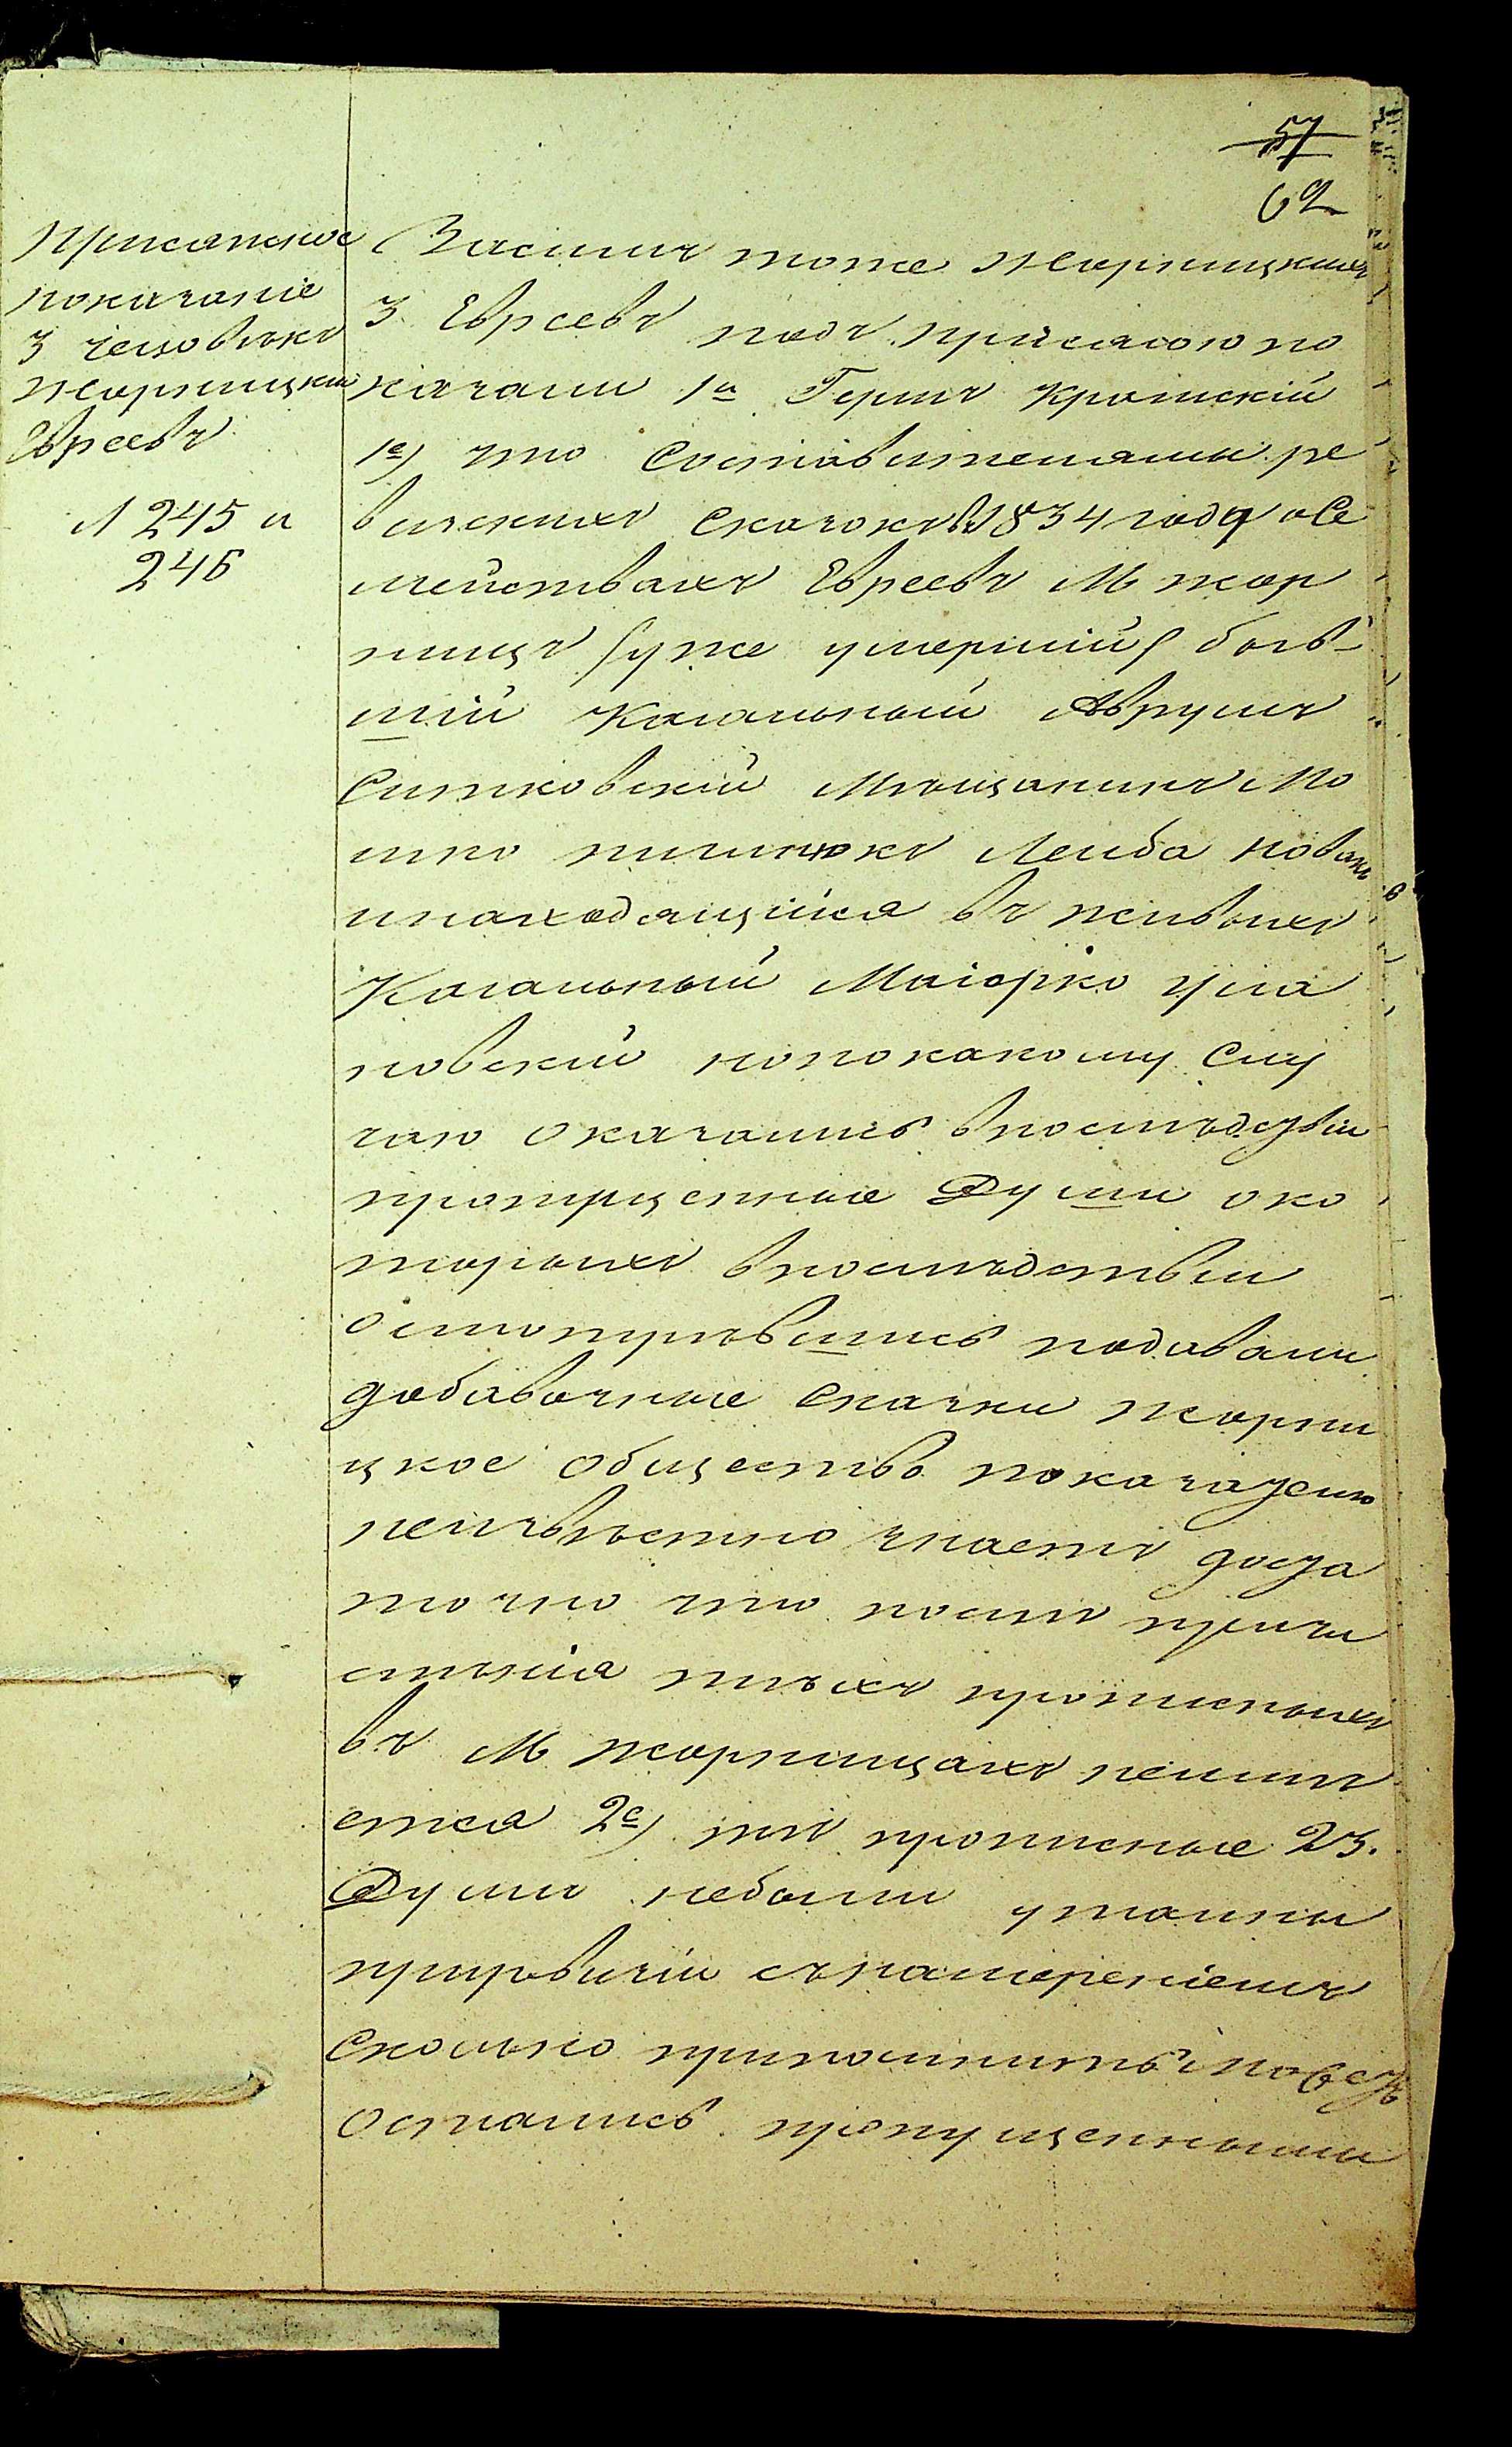 57
62
Присяжное
показаніе
3 человѣкъ
Жорницкихъ
Евреевъ
л 245 и
246
Засимъ тоже Жорницкихъ
3 Евреевъ подъ присягою по
казали 1й Гершъ Кролискій
1е) что Составителями ре
визскихъ Сказокъ въ 1834 году о Се
мействахъ Евреевъ М Жор
нищъ (уже умершій) быв-
шій Кагальный Аврумъ
Ситковскій Мѣщанинъ Мо
шко Лейба Новакъ
и находящійся въ живыхъ
Кагальный Маіорко Ула
новскій но по какому Слу
чаю оказались впослѣдствіи
пропущенные Души о ко
торыхъ впослѣдствіи
осмотрѣвшись подавали
добавочные Сказки Жорни
цкое Общество показателю
неизвѣстно знаетъ доста
точно что послѣ причи
сленія тѣхъ прописныхъ
въ М Жорнищахъ неимѣ
ется 2е) тѣ прописные 23.
Души небыли утаины
при ревизіи съ намѣреніемъ
Сколько припомнить можетъ
остались пропущенными